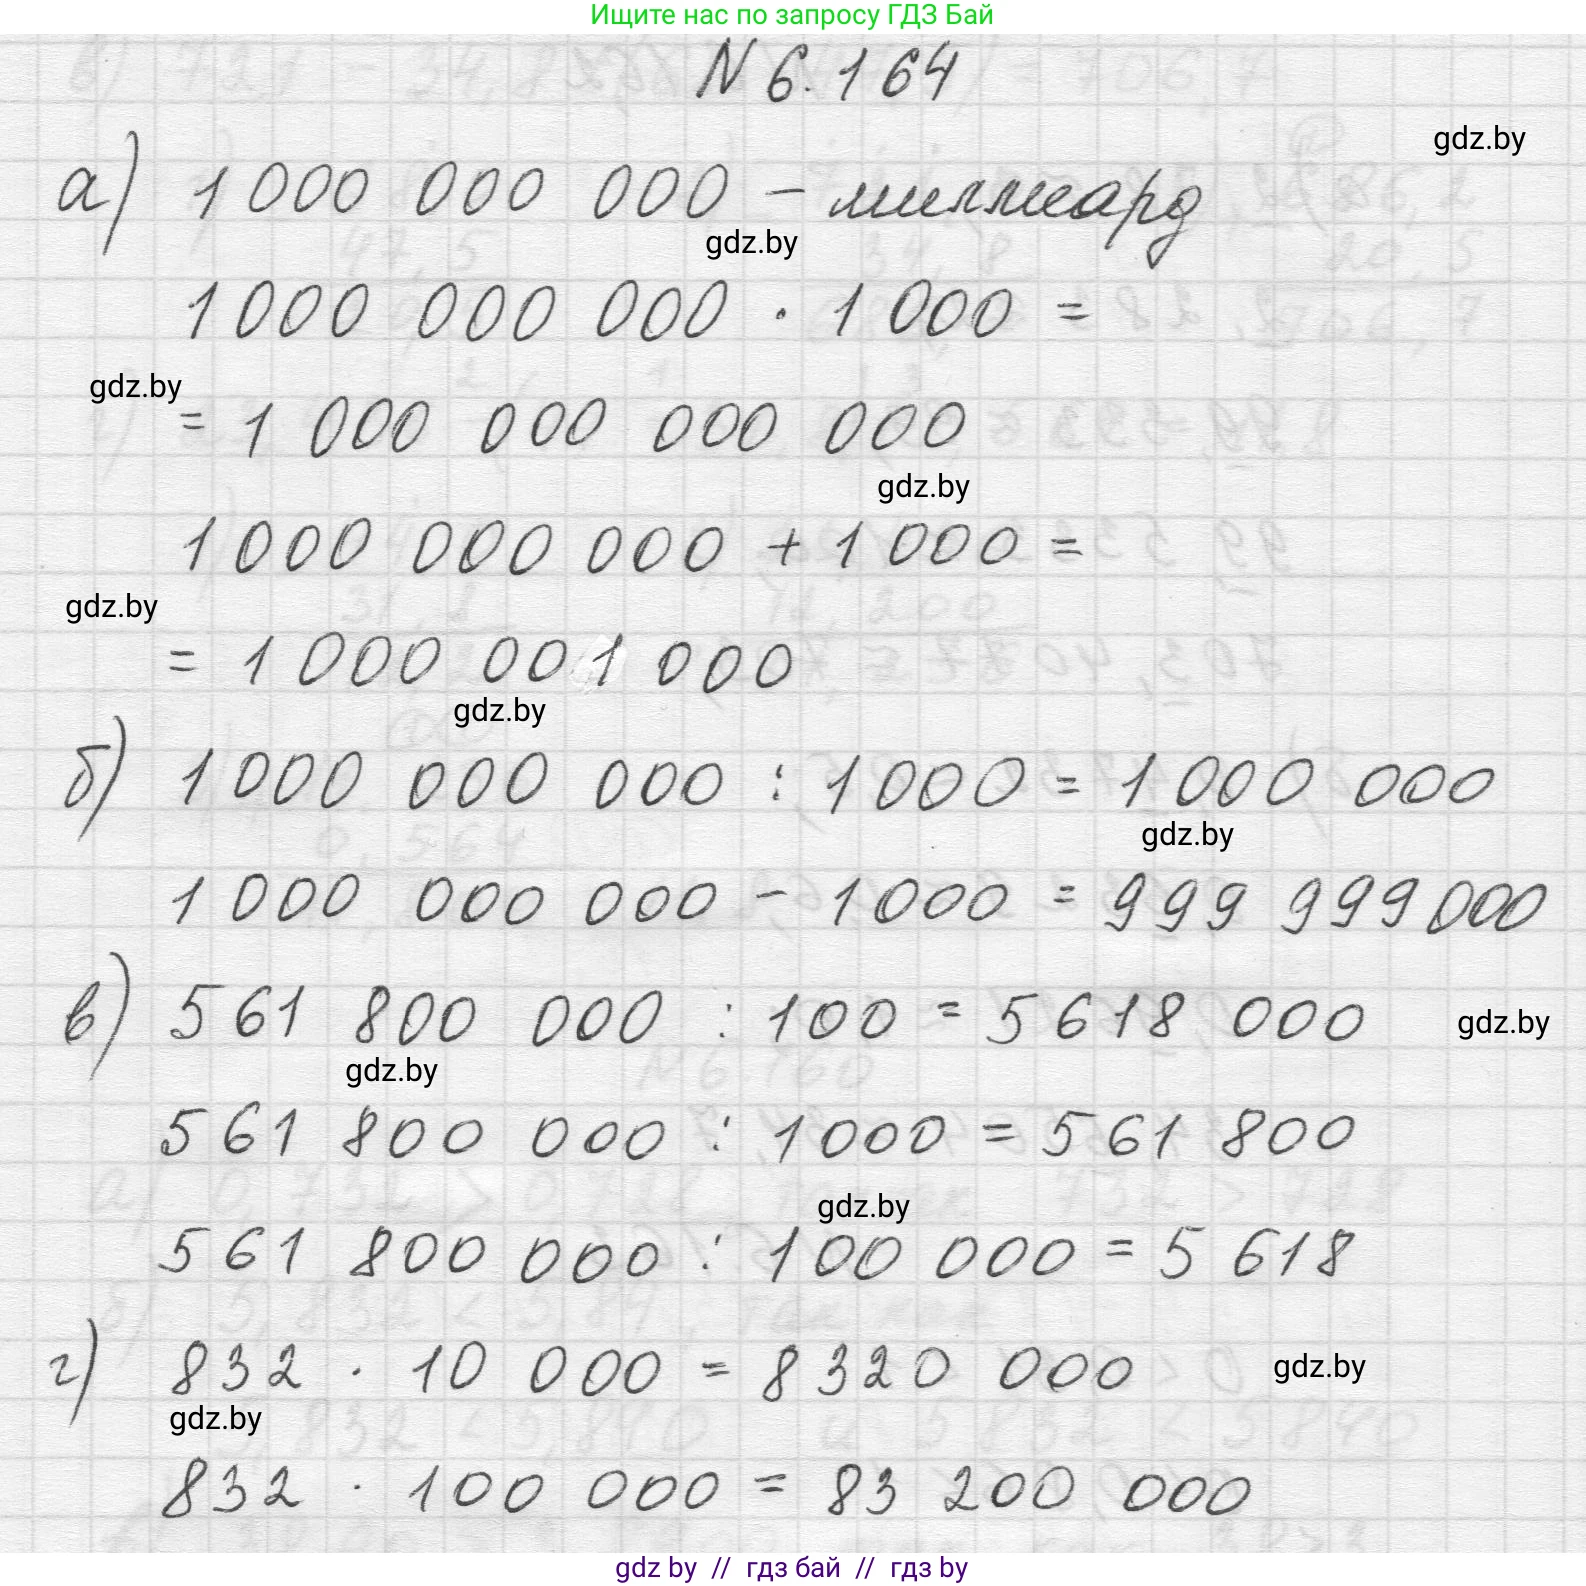 Ищите нас по запросу ГДЗ Бай
N 6.164
gdz.by
а) 1 000 000 000 - миллиард
gdz.by
1 000 000 000 · 1 000 =
gdz.by
= 1 000 000 000 000
gdz.by
1 000 000 000 + 1 000 =
gdz.by
= 1 000 001 000
gdz.by
б) 1 000 000 000 : 1 000 = 1 000 000
gdz.by
1 000 000 000 - 1000 = 999 999 000
в) 561 800 000 : 100 = 5 618 000
gdz.by
gdz.by
561 800 000 : 1000 = 561 800
gdz.by
561 800 000 : 100 000 = 5 618
г) 832 · 10 000 = 8 320 000
gdz.by
gdz.by
832 · 100 000 = 83 200 000
gdz by // гдз бай // гдз by